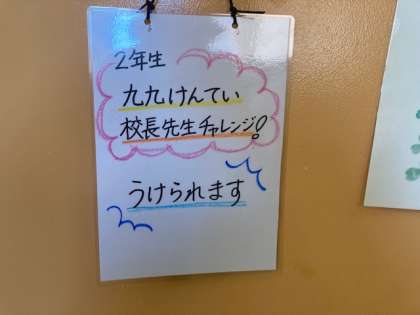 2年生
九九けんてい
校長先生チャレンジ!
うけられます